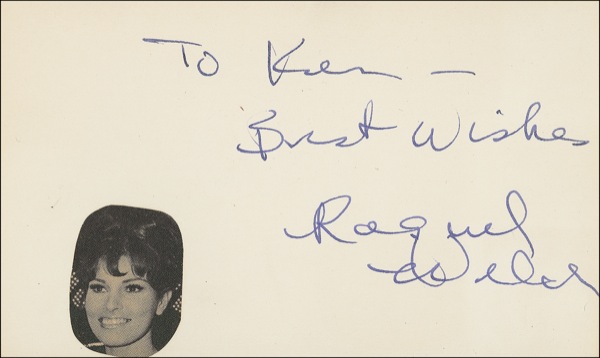 To Ken —
Best Wishes
Raquel
Welch